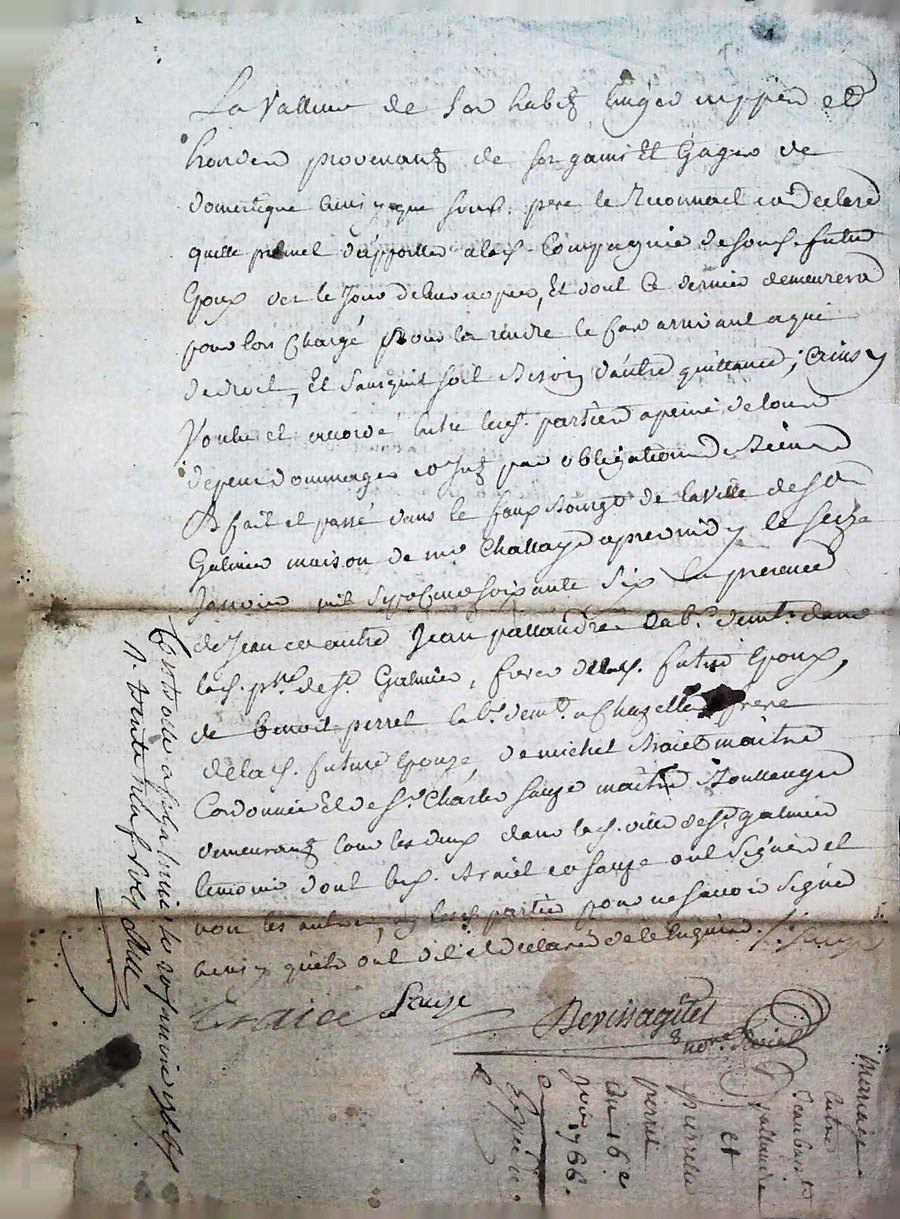 La valleur de ses habitz linges nippes et
hardes provenantz de ses gains Et Gages de
domestique ainsy que sond. pere le Reconnoit et Declare
quelle promet d'apporter a la d. Compagnie de sond. futur
Epoux des le Jour de leurs nopces, Et dont Ce dernier demeurera
pour lors Chargé pour la rendre le Cas arrivant a qui
de droit, Et sans quil soit Besoin d'autre quittance; Ainsy
Voulu et accordé Entre lesd. parties a peine de tous
depens dommages et par obligation de Biens
fait et passé dans le faux Bourgt de la Ville de St
Galmier maison de me Challaye apres midy le seize
Janvier mil sept Cent soixante six En presence
de Jean et autre Jean pallandre Lab.r demt. dans
lad. p.sse de St. Galmier, freres dud. futur Epoux,
de Benoit perret lab.r demt. a Chazelle frere
de la d. future Epouze, de michel Braiet maitre
Cordonnier Et de Sr. Charles Sauze maitre Boullenger
demeurantz tous les deux dans lad. ville de St. galmier
temoins dont lesd. Braiet et Sauze ont signés et
non les autres, ny lesd. parties pour ne savoir signer
ainsy quils ont dit et declaré de ce Enquis.
Braiet Sauze
Devissaguet
no.re Royal
Controllé a St galmier le janvier 1766
R. trente neuf sols
Mariage
Entre
Jean
pallandre
et
pierrette
perret
du 16e
janv. 1766.
Expedié